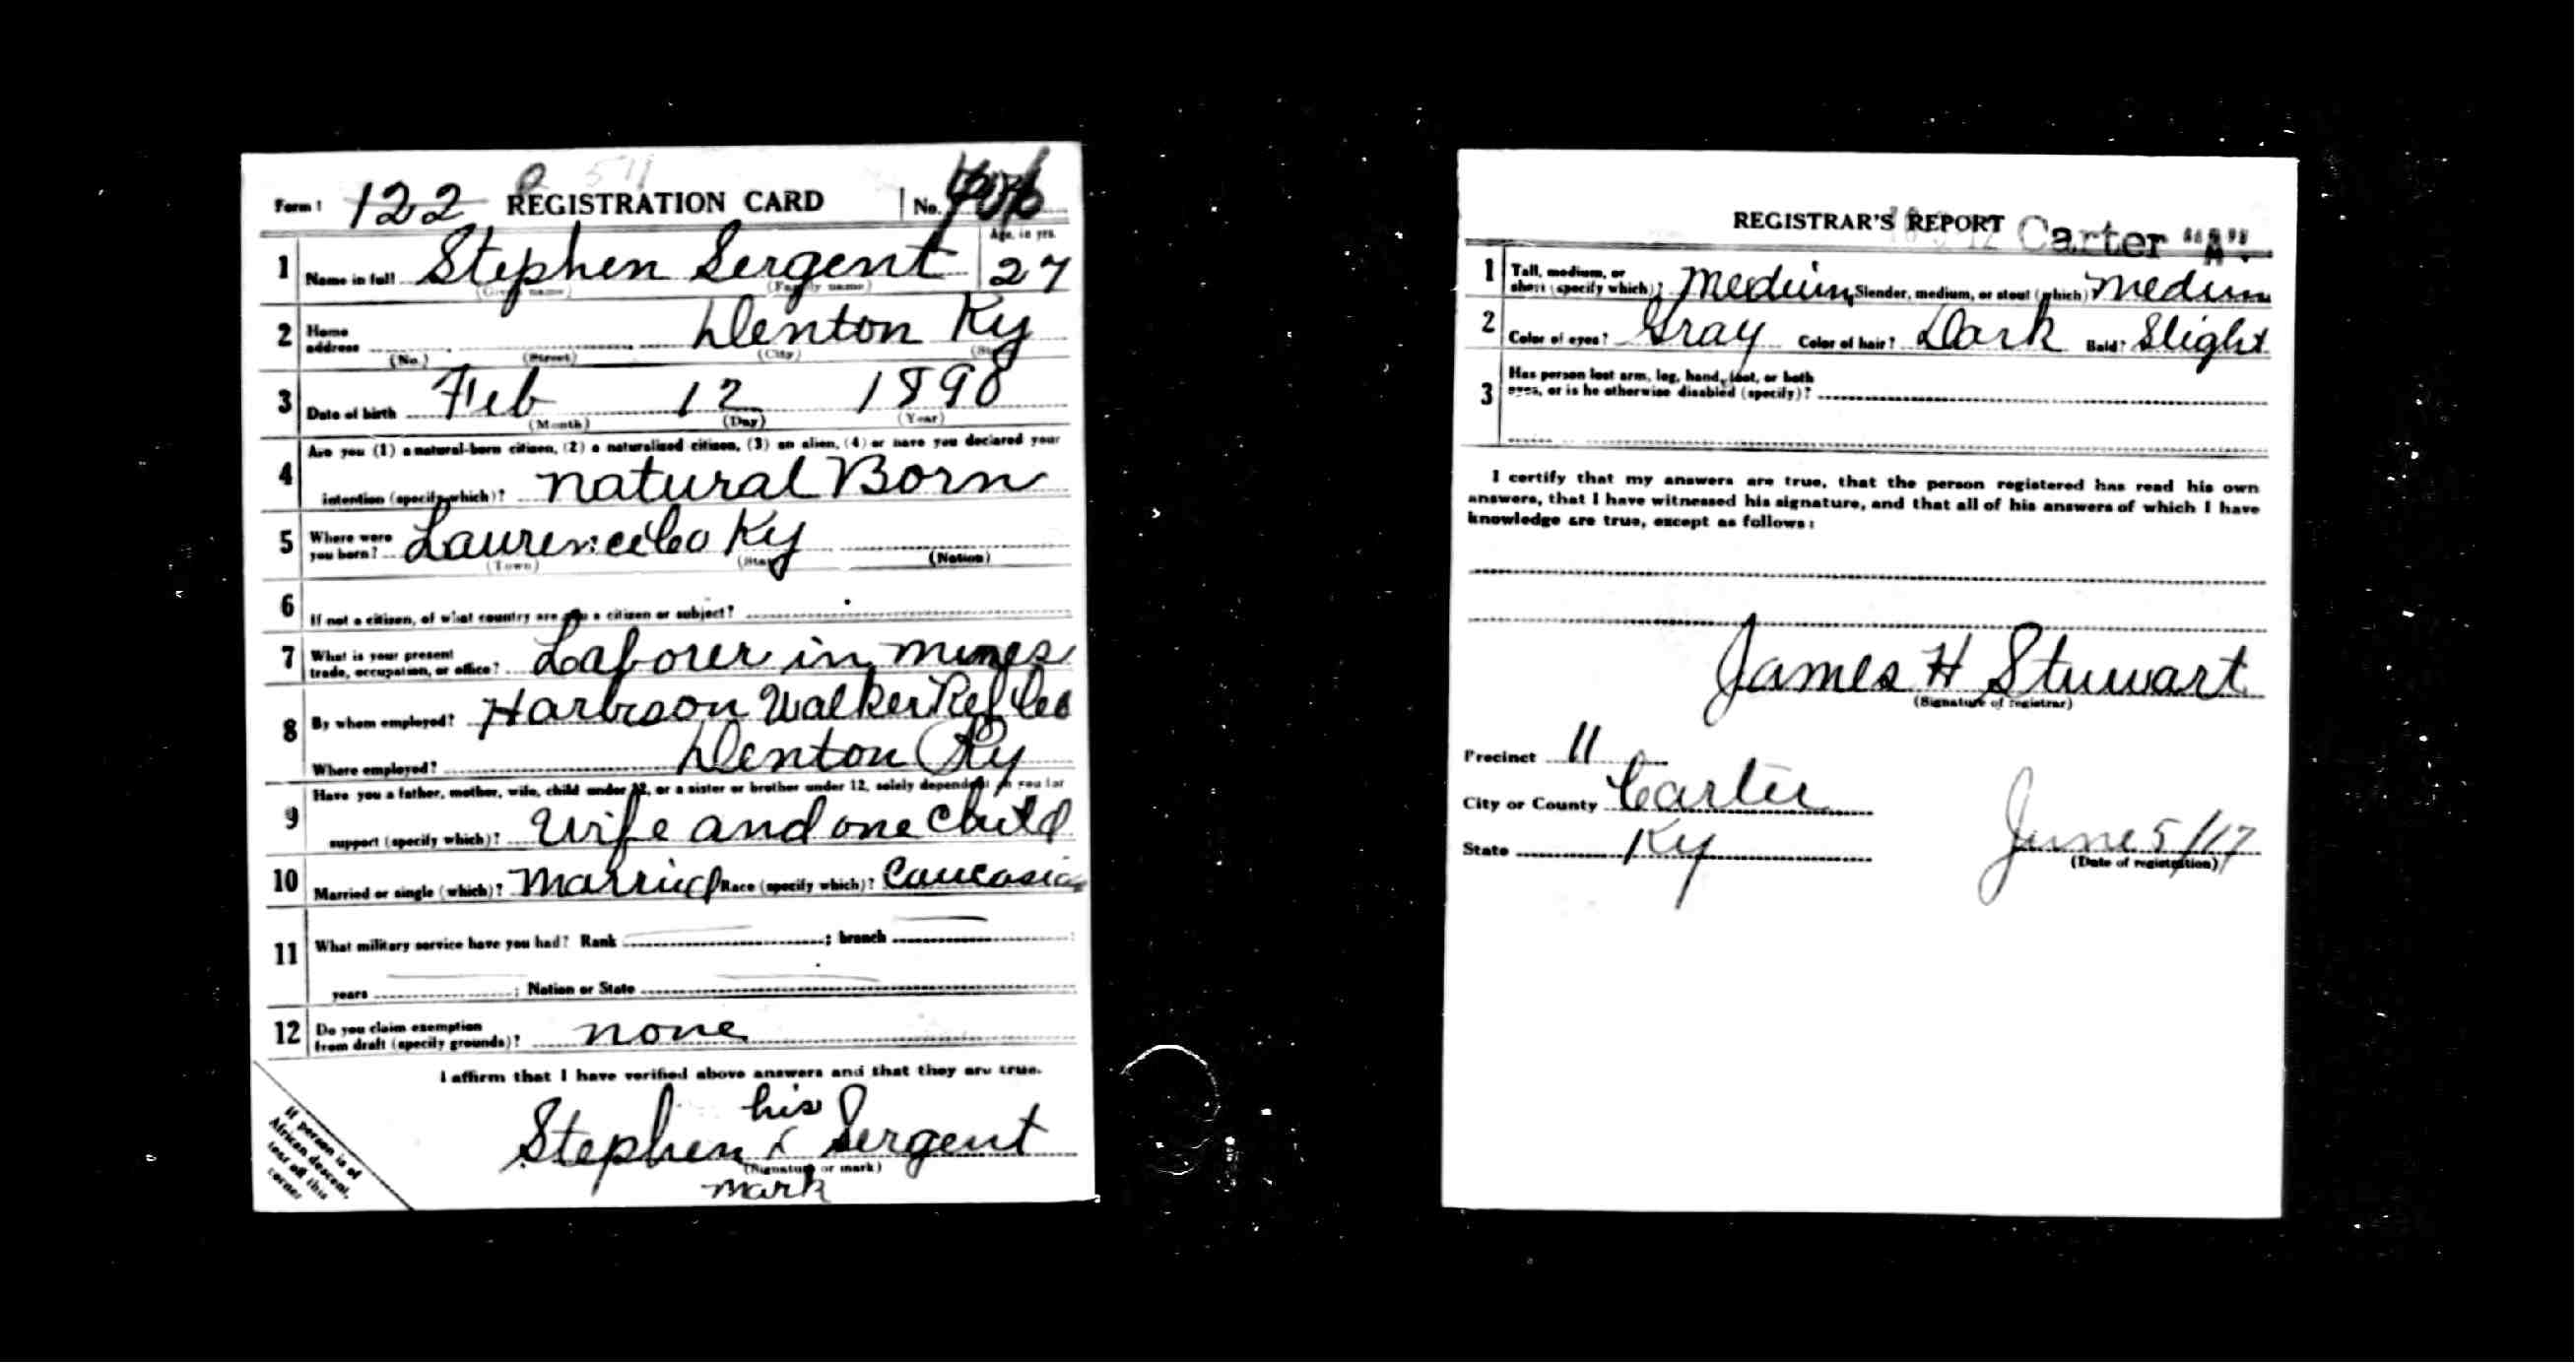 Form 1 122 REGISTRATION CARD No.
Age, in yrs.
1 Name in full Stephen Sergent 27
(Given name) (Family name)
2 Home address Denton Ky
(No.) (Street) (City)
3 Date of birth Feb 12 1890
(Month) (Day) (Year)
4 Are you (1) a natural-born citizen, (2) a naturalized citizen, (3) an alien, (4) or have you declared your
intention (specify which)? natural Born
5 Where were you born? Laurence Co Ky
(Town) (State) (Nation)
6 If not a citizen, of what country are you a citizen or subject?
7 What is your present trade, occupation, or office? Laborer in mines
8 By whom employed? Harbison Walker Ref Co
Where employed? Denton Ky
9 Have you a father, mother, wife, child under 12, or a sister or brother under 12, solely dependent on you for
support (specify which)? Wife and one Child
10 Married or single (which)? Married Race (specify which)? Caucasian
11 What military service have you had? Rank ; branch ;
years ; Nation or State
12 Do you claim exemption from draft (specify grounds)? none
I affirm that I have verified above answers and that they are true.
his
Stephen x Sergent
(Signature or mark)
mark
If person is of
African descent,
tear off this
corner
REGISTRAR'S REPORT Carter "A".
1 Tall, medium, or short (specify which)? Medium Slender, medium, or stout (which) Medium
2 Color of eyes? Gray Color of hair? Dark Bald? Slight
3 Has person lost arm, leg, hand, foot, or both
eyes, or is he otherwise disabled (specify)?
I certify that my answers are true, that the person registered has read his own
answers, that I have witnessed his signature, and that all of his answers of which I have
knowledge are true, except as follows:
James H Stuwart
(Signature of registrar)
Precinct 11
City or County Carter
State Ky
June 5/17
(Date of registration)